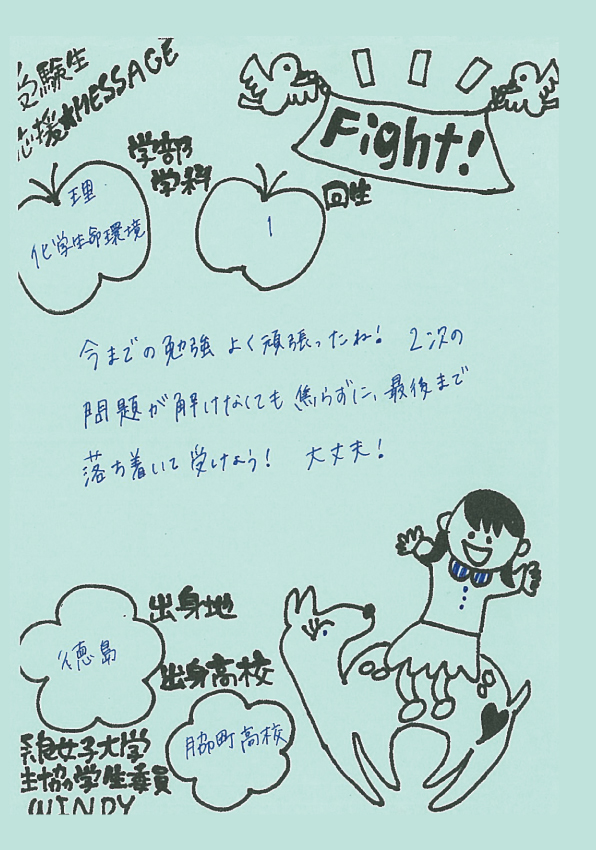 受験生
応援★MESSAGE
Fight!
学部
学科
回生
理
化学生命環境
1
今までの勉強よく頑張ったね! 2次の
問題が解けなくても焦らずに、最後まで
落ち着いて受けよう! 大丈夫!
出身地
徳島
出身高校
脇町高校
奈良女子大学
生協の学生委員
WINDY